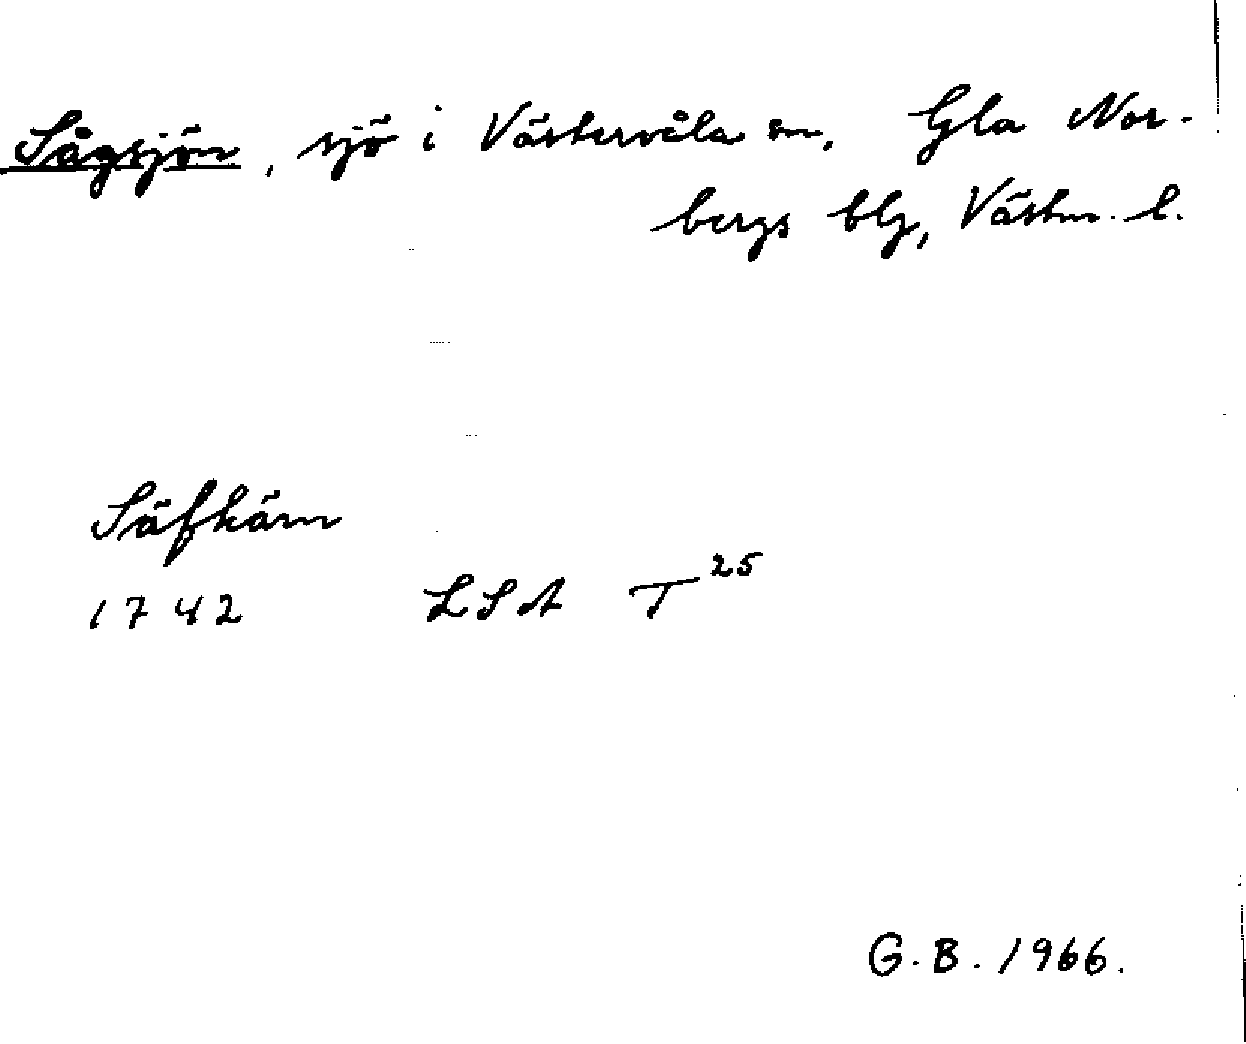 Sågsjön, sjö i Västervåla sn, Gla Nor-
bergs blg, Västm. l.
Säftärn
1742 LSA T 25
G.B. 1966.